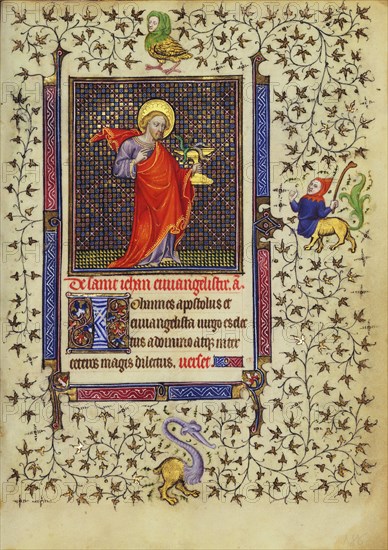 De saint iehan euuangelistre. ã.
Iohannes apostolus et
euuangelista uirgo est elec
tus a domino atq; inter
ceteros magis dilectus. verset